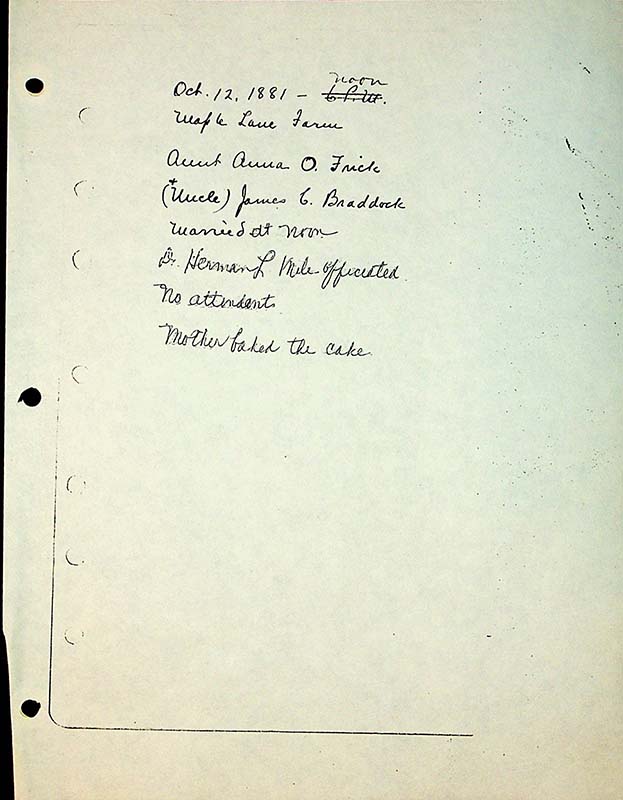 noon
Oct. 12, 1881 - 6 P.M.
Maple Lane Farm
Aunt Anna O. Frick
+
(Uncle) James C. Braddock
Married at Noon
Dr. Herman L Mile officiated
No attendants
Mother baked the cake.